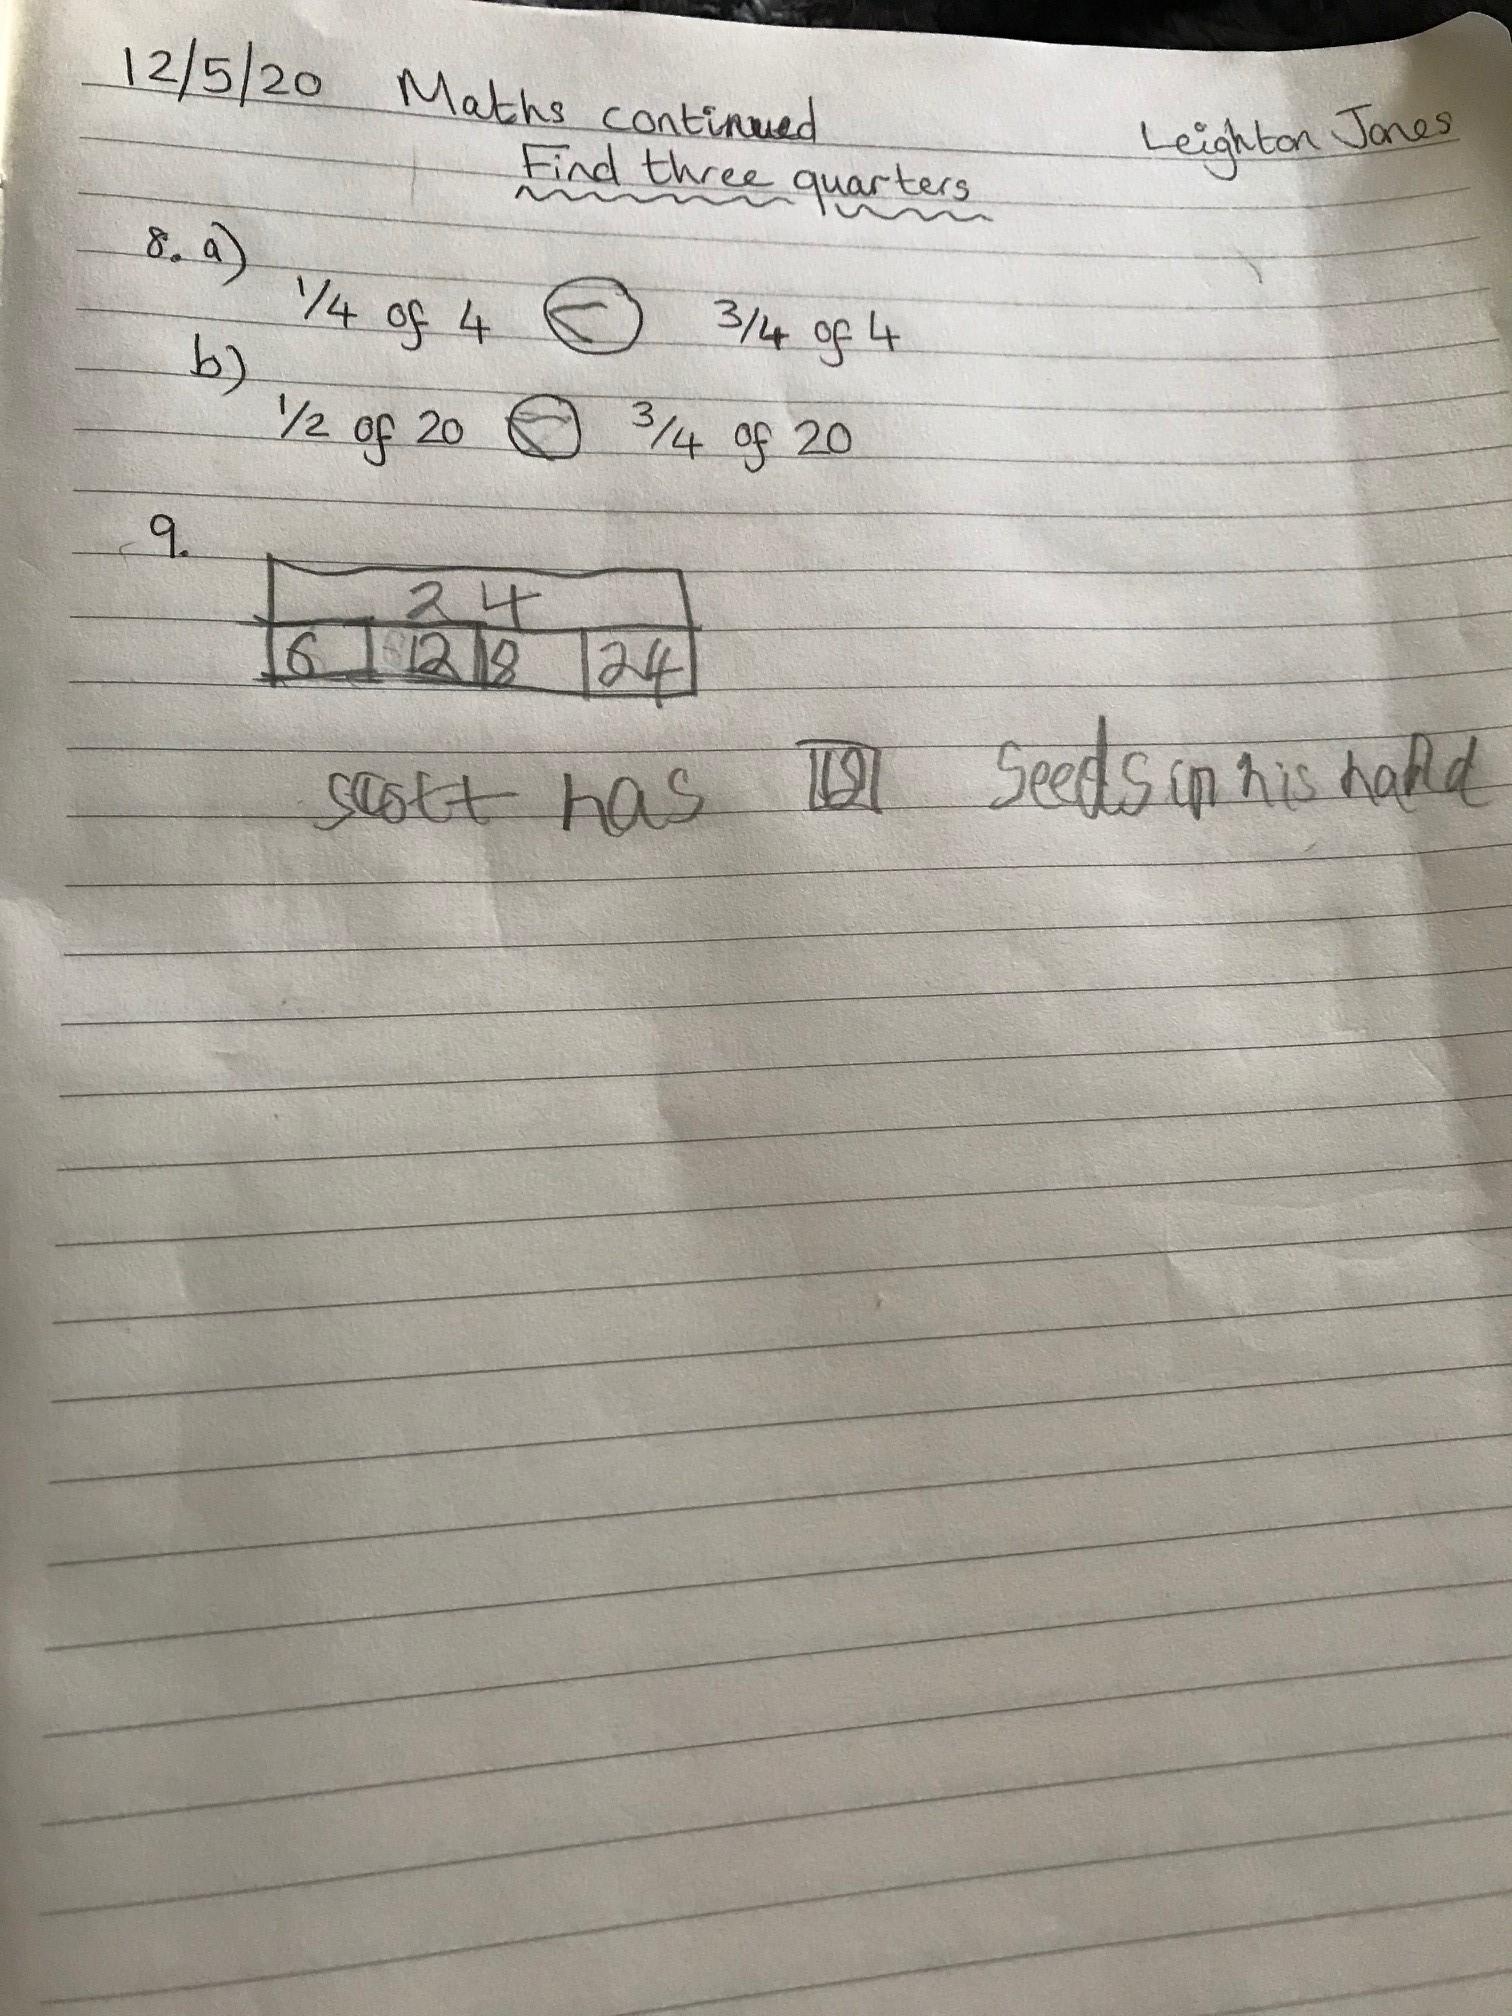 12/5/20 Maths continued Leighton Jones
Find three quarters
8. a)
1/4 of 4 < 3/4 of 4
b)
1/2 of 20 < 3/4 of 20
9.
24
6 12 18 24
scott has seeds in his hand